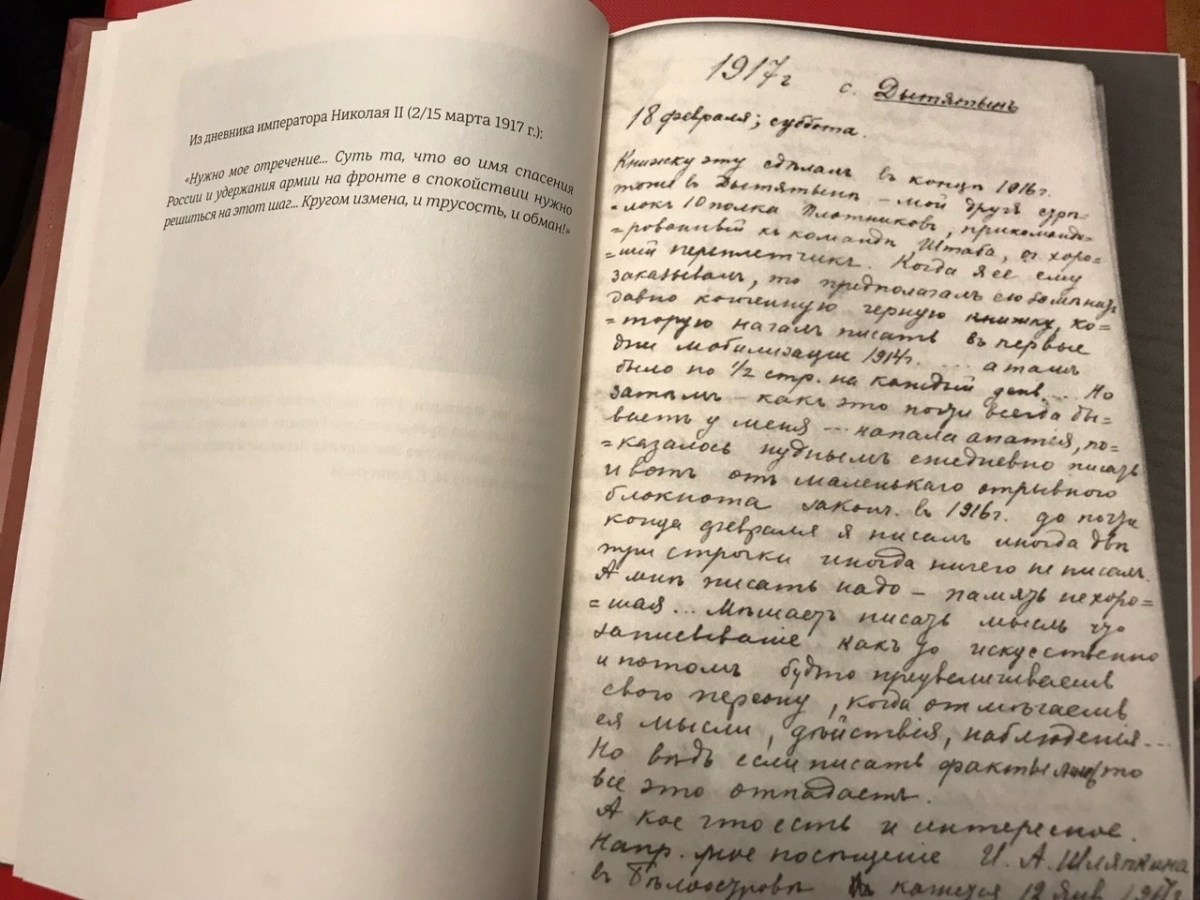 Из дневника императора Николая II (2/15 марта 1917 г.):
«Нужно мое отречение... Суть та, что во имя спасения
России и удержания армии на фронте в спокойствии нужно
решиться на этот шаг... Кругом измена, и трусость, и обман!»
1917 г с. Дытятынъ
18 февраля; суббота.
Книжку эту сдѣлалъ въ концѣ 1916 г.
тоже в Дытятынѣ – мой другъ стрѣ-
=локъ 10 полка Плотниковъ, прикоманди-
=рованный къ командѣ Штаба, оч хоро-
=шiй переплетчикъ. Когда я ее ему
заказывалъ, то предполагалъ
давно конченную черную книжку, ко=
=торую началъ писать въ первые
дни мобилизацiи 1914 г. ... а тамъ
было по 1/2 стр. на каждый день... Но
затѣмъ – какъ это почти всегда бы-
ваетъ у меня ... напала апатiя, по-
=казалось нуднымъ ежедневно писать
и вотъ отъ маленькаго отрывного
блокнота законч. въ 1916 г. до почти
конца февраля я писалъ иногда двѣ
три строчки иногда ничего не писалъ.
А мнѣ писать надо – память нехоро=
=шая... Мѣшаетъ писать мысль что
записыванiе какъ то искусственно
и потомъ будто преувеличиваешь
свою персону, когда отмѣчаешь
ея мысли, дѣйствiя, наблюденiя...
Но вѣдь если писать факты то
все это отпадаетъ.
А кое что есть и интересное.
Напр. мое посѣщенiе И. А. Шляпкина
въ Бѣлоостровѣ кажется 12 янв 1917 г